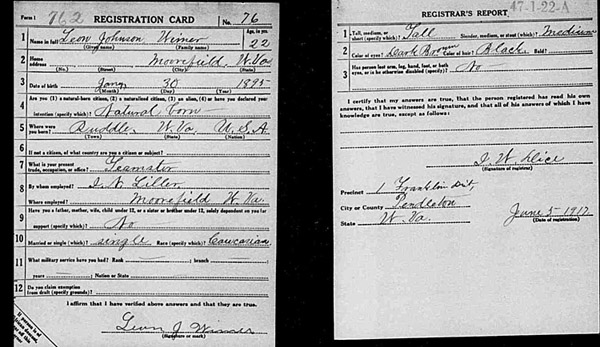 Form 1 762 REGISTRATION CARD No. 76
1 Name in full Leon Johnson Wimer Age, in yrs. 22
(Given name) (Family name)
2 Home address Moorefield, W. Va
(No.) (Street) (City) (State)
3 Date of birth Jany 30 1895
(Month) (Day) (Year)
4 Are you (1) a natural-born citizen, (2) a naturalized citizen, (3) an alien, (4) or have you declared your
intention (specify which)? Natural born
5 Where were you born? Ruddle W. Va, U.S.A
(Town) (State) (Nation)
6 If not a citizen, of what country are you a citizen or subject?
7 What is your present trade, occupation, or office? Teamster
8 By whom employed?
Where employed? Moorefield W. Va.
9 Have you a father, mother, wife, child under 12, or a sister or brother under 12, solely dependent on you for
support (specify which)? No
10 Married or single (which)? single Race (specify which)? Caucasian
11 What military service have you had? Rank ; branch ;
years ; Nation or State
12 Do you claim exemption from draft (specify grounds)?
I affirm that I have verified above answers and that they are true.
Leon J Wimer
(Signature or mark)
If person is of
REGISTRAR'S REPORT 47-1-22-A
1 Tall, medium, or short (specify which)? Tall Slender, medium, or stout (which)? Medium
2 Color of eyes? Dark Brown Color of hair? Black Bald?
3 Has person lost arm, leg, hand, foot, or both eyes, or is he otherwise disabled (specify)? No
I certify that my answers are true, that the person registered has read his own
answers, that I have witnessed his signature, and that all of his answers of which I have
knowledge are true, except as follows:
(Signature of registrar)
Precinct 1 Franklin Dist,
City or County Pendleton
State W. Va. June 5 - 1917
(Date of registration)